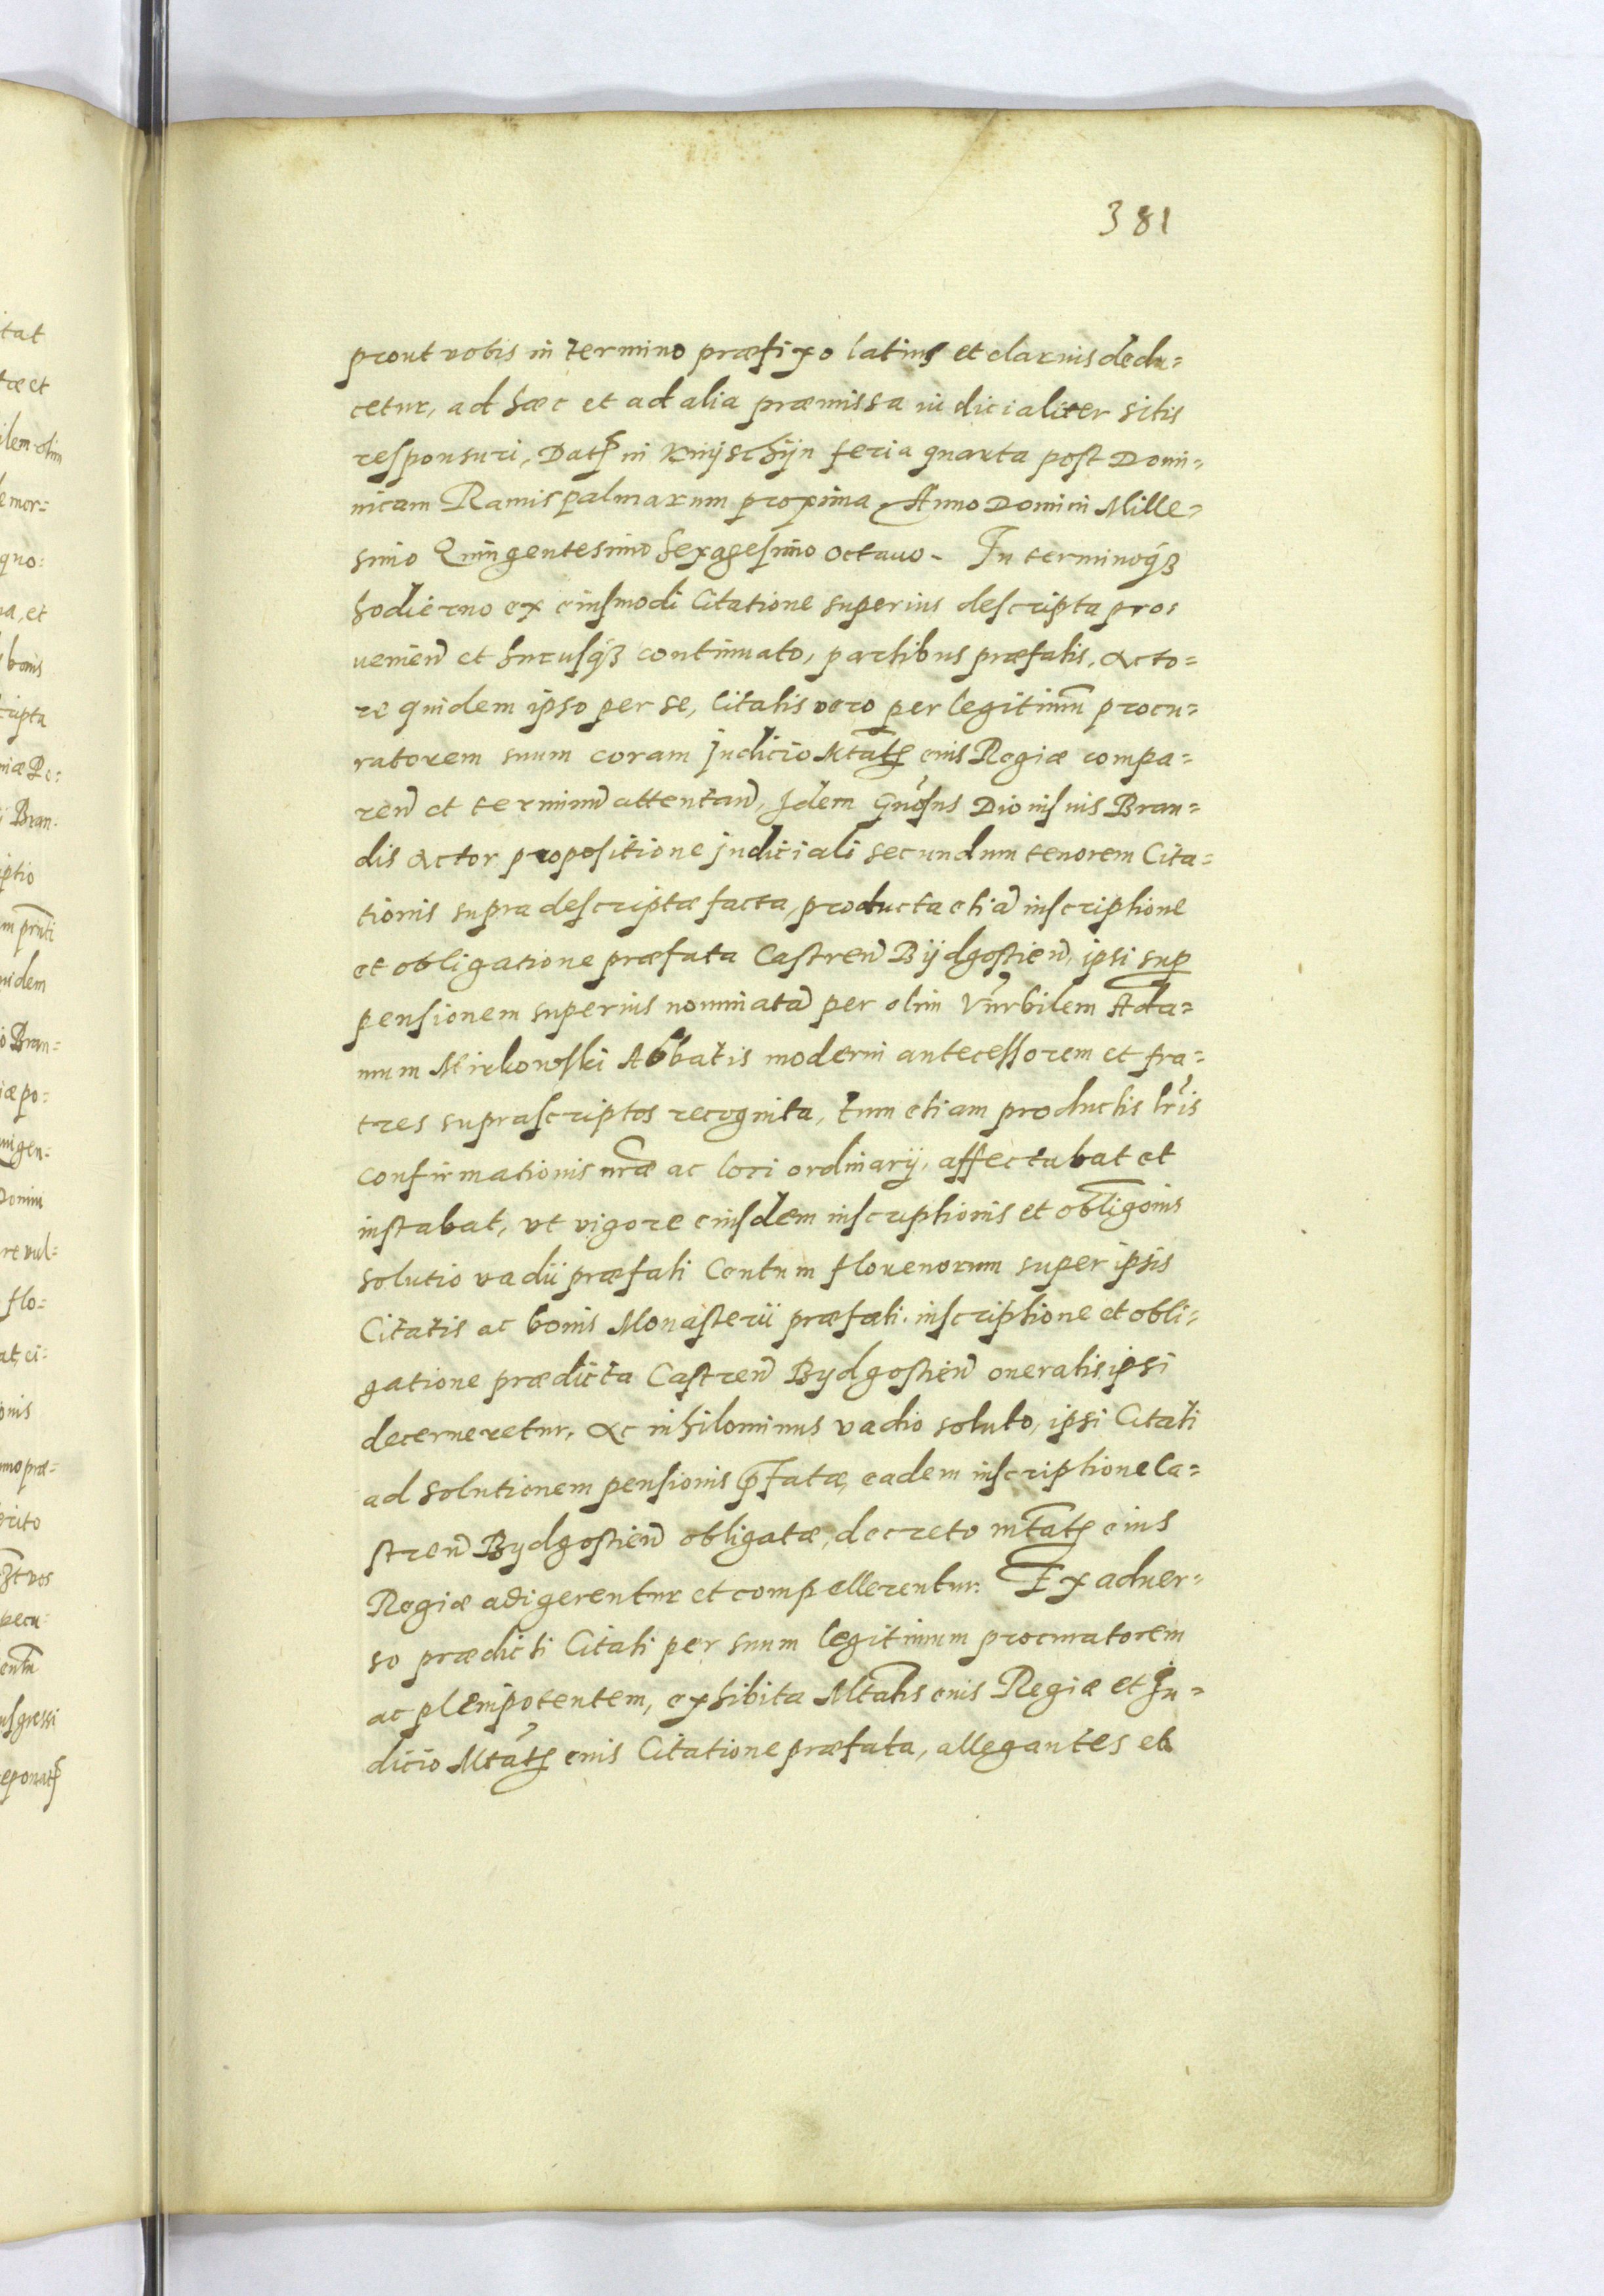 381
prout vobis in termino præfixo latius et clarius dedu=
cetur, ad hæc et ad alia præmissa iudicialiter sitis
responsuri, Datꝭ in Knijschijn feria quarta post Domi=
nicam Ramispalmarum proxima Anno Domini Mille=
simo Quingentesimo Sexagesimo octauo - In terminoqꝫ
hodierno ex eiusmodi Citatione superius descripta pro=
venien̄ et hucusqꝫ continuato, partibus præfatis, Acto=
re quidem ipso per se, Citatis vero per legitimū procu=
ratorem suum coram Judicio Mtātꝭ eius Regiæ compa=
ren̄ et terminū attentan̄, Idem Gn̄osus Dionisius Bran=
dis Actor propositione judiciali secundum tenorem Cita=
tionis supra descriptæ facta, producta etiā inscriptione
et obligatione præfata Castren̄ Bijdgostien̄, ipsi sup̄
pensionem superius nominatā per olim Vn̄rbilem Ada=
mum Mirkowski Abbatis moderni antecessorem et fra=
tres suprascriptos recognita, tum etiam productis lr̄is
confirmationis nr̄æ ac loci ordinarij, affectabat et
instabat, vt vigore eiusdem inscriptionis et obligōnis
solutio vadii præfati Centum florenorum super ipsis
Citatis ac bonis Monasterii præfati inscriptione et obli=
gatione prædicta Castren̄ Bydgostien̄ oneratis ipsi
decerneretur, Ac nihilominus vadio soluto, ipsi Citati
ad solutionem pensionis p̄fatæ, eadem inscriptione Ca=
stren̄ Bydgostien̄ obligatæ, decreto Mtātꝭ eius
Regiæ adigerentur et compellerentur: Ex aduer=
so prædicti Citati per suum legitimum procuratorem
ac plenipotentem, exhibita Mtātis eius Regiæ et Ju=
dicio Mtātꝭ eius Citatione præfata, allegantes et